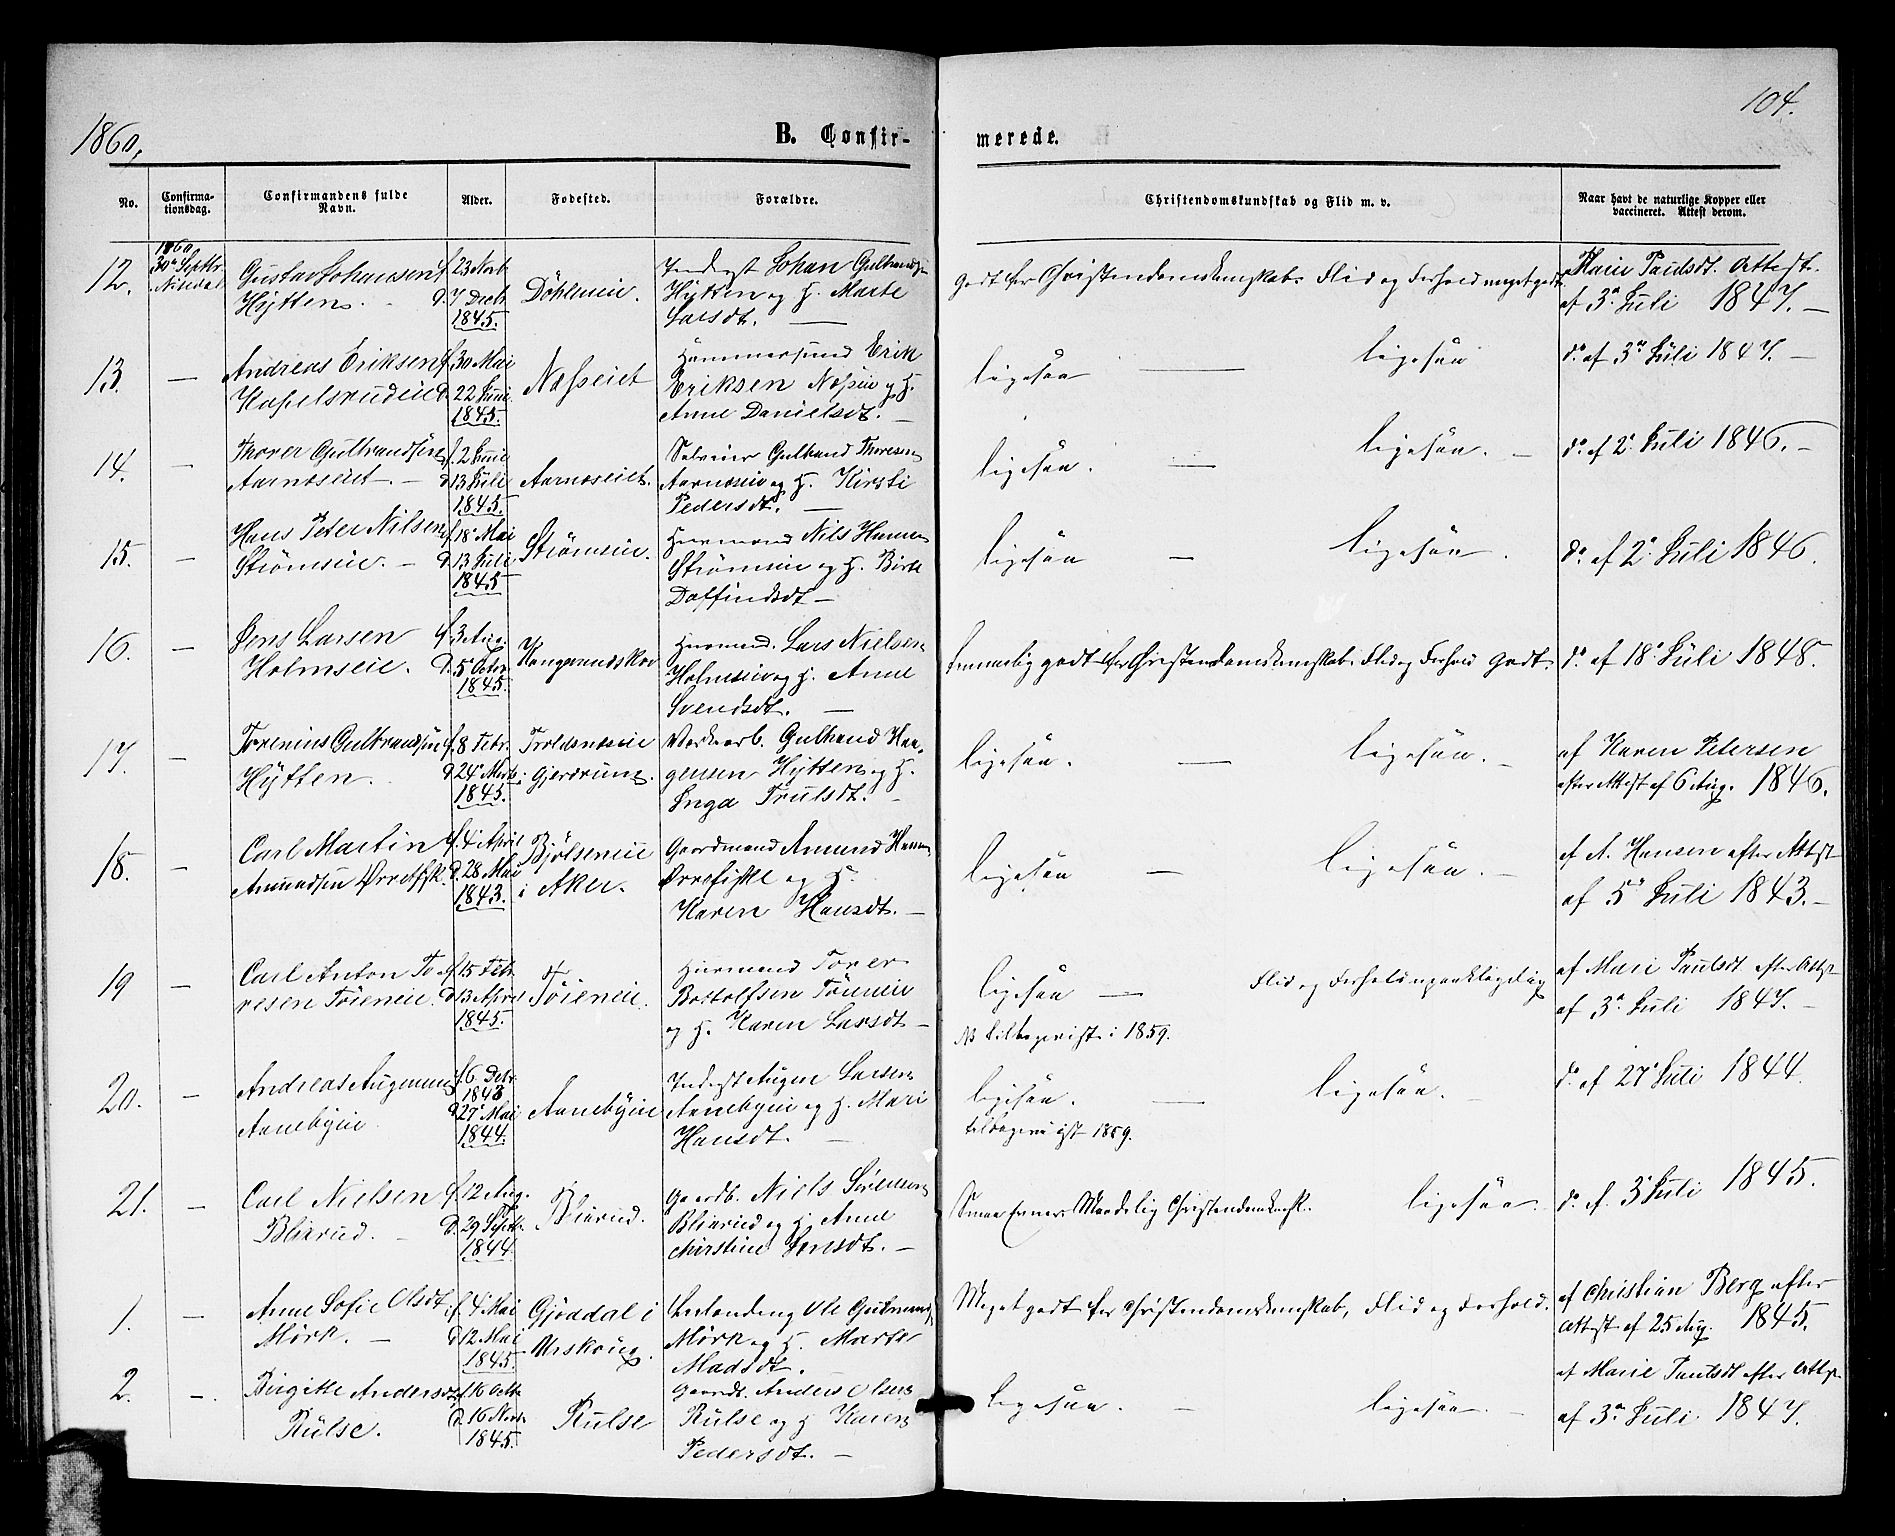 104.
1860.
B. Confir-
merede.
No.
Confirma-
tionsdag.
Confirmandens fulde
Navn.
Alder.
Fødested.
Forældre.
Christendomskundskab og Flid m. v.
Naar havt de naturlige Kopper eller
vaccineret. Attest derom.
12.
1860
30te Septbr.
Nitedal
Gustav Johansen
Hÿtten.
f. 23 Novb
d. 7 Decbr
1845.
Döhleneie.
Inderst Johan Gulbrands.
Hÿtten og H. Marte
Larsdt. —
godt for Christendomskundskab. Flid og Forhold meget godt
Marie Paulsdt. Attest.
af 3die Juli 1847. —
13.
—
Andreas Eriksen
Kapelsrudeie
f. 30 Mai
d. 22 Juni
1845.
Næsseiet
Huusmand Erik
Eriksen Næsseie og H.
Anne Danielsdt. —
ligesaa —
ligesaa
do. af 3die Juli 1847. —
14.
—
Thorer Gulbrandsen
Aarnæseiet —
f. 2 Juni
d. 13 Juli
1845.
Aarnæseiet.
Selveier Gulbrand Thoresen
Aarnæseie og H. Kirsti
Pedersdt. —
ligesaa. —
ligesaa. —
do. af 2 Juli 1846. —
15.
—
Hans Peter Nilsen
Strömseie. —
f. 18 Mai
d. 13 Juli
1845
Strömseie.
Huusmand Nils Hansen
Strömseie og H. Birte
Daffindsdt —
ligesaa —
ligesaa.
do. af 2 Juli 1846.
16.
—
Jens Larsen
Holmseie.
f. 3 Aug.
d. 5 Octbr.
1845.
Kongsrundskov
Huusmand. Lars Nielsen
Holmseie og H. Anne
Svendsdt. —
temmelig godt for Christendomskundskab. Flid og Forhold godt.
do. af 18 Juli 1848.
17.
—
Torenius Gulbrandsen
Hÿtten.
f. 8 Febr.
d. 24 Marts
1845.
Troldsnæseie
i Gjerdrum.
Værkarb. Gulbrand Haa-
gensen Hÿtten og H.
Inga Trulsdt. —
ligesaa. —
ligesaa. —
af Karen Petersen
efter Attest af 6 Aug. 1846.
18.
—
Carl Martin
Amundsen Ørrefisk.
f. 4 April
d. 28 Mai
1843.
Bjölseneie
i Aker.
Gaardmand Amund Hansen
Ørrefiske og H.
Karen Hansdt. —
ligesaa —
ligesaa. —
af A. Hansen efter Attest
af 5 Juli 1843. —
19
—
Carl Anton To-
resen Töieneie.
f. 15 Febr
d. 13 April
1845.
Töieneie.
Huusmand Torer
Bottolfsen Töieneie
og H. Karen Larsdt —
ligesaa —
NB tilbagevist i 1859.
Flid og Forhold upaaklagelig
af Mari Paulsdt efter Attest
af 3die Juli 1847. —
20.
—
Andreas Augensen
Aanebÿeie
f. 6 Debr
1843
d. 27 Mai
1844.
Aanebÿeie
Inderst Augen Larsen
Aanebÿeie og H. Mari
Hansdt. —
ligesaa. —
tilbagevist 1859.
ligesaa. —
do. af 27 Juli 1844.
21.
—
Carl Nielsen
Blierud. —
f. 12 Aug.
d. 29 Septb.
1844
Blierud.
Gaardb. Niels Sörensen
Blierud og H. Anne
Kirstine Jensdt. —
Smaa Evner. Maadelig Christendomskundsk.
ligesaa.
do. af. 3 Juli 1845.
1.
—
Anne Sofie Olsdt.
Mörk. —
f. 4 Mai
d. 12 Mai
1845.
Gjöadal i
Urskoug.
Ole Gulbrands.
Mörk og H. Marte
Madsdt. —
Meget godt for Christendomskundskab, Flid og Forhold.
af Christian Berg efter
Attest af 25 Aug. 1845.
2.
—
Birgitte Andersdt
Rulse.
f. 16 Octb
d. 16 Novb.
1845.
Rulse
Gaardb. Anders Olsen
Rulse og H. Karen
Pedersdt. —
ligesaa. —
ligesaa. —
af Marie Paulsdt efter Attest
af 3die Juli 1847.